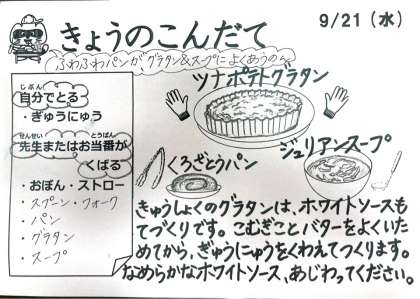 きょうのこんだて
9/21（水）
ふわふわパンが、グラタン&スープによくあうの〜
ツナポテトグラタン
くろざとうパン
ジュリアンスープ
じぶん
自分でとる
・ぎゅうにゅう
せんせい とうばん
先生またはお当番が
くばる
・おぼん・ストロー
・スプーン・フォーク
・パン
・グラタン
・スープ
きゅうしょくのグラタンは、ホワイトソースも
てづくりです。こむぎことバターをよくいた
めてから、ぎゅうにゅうをくわえてつくります。
なめらかなホワイトソース、あじわってください。